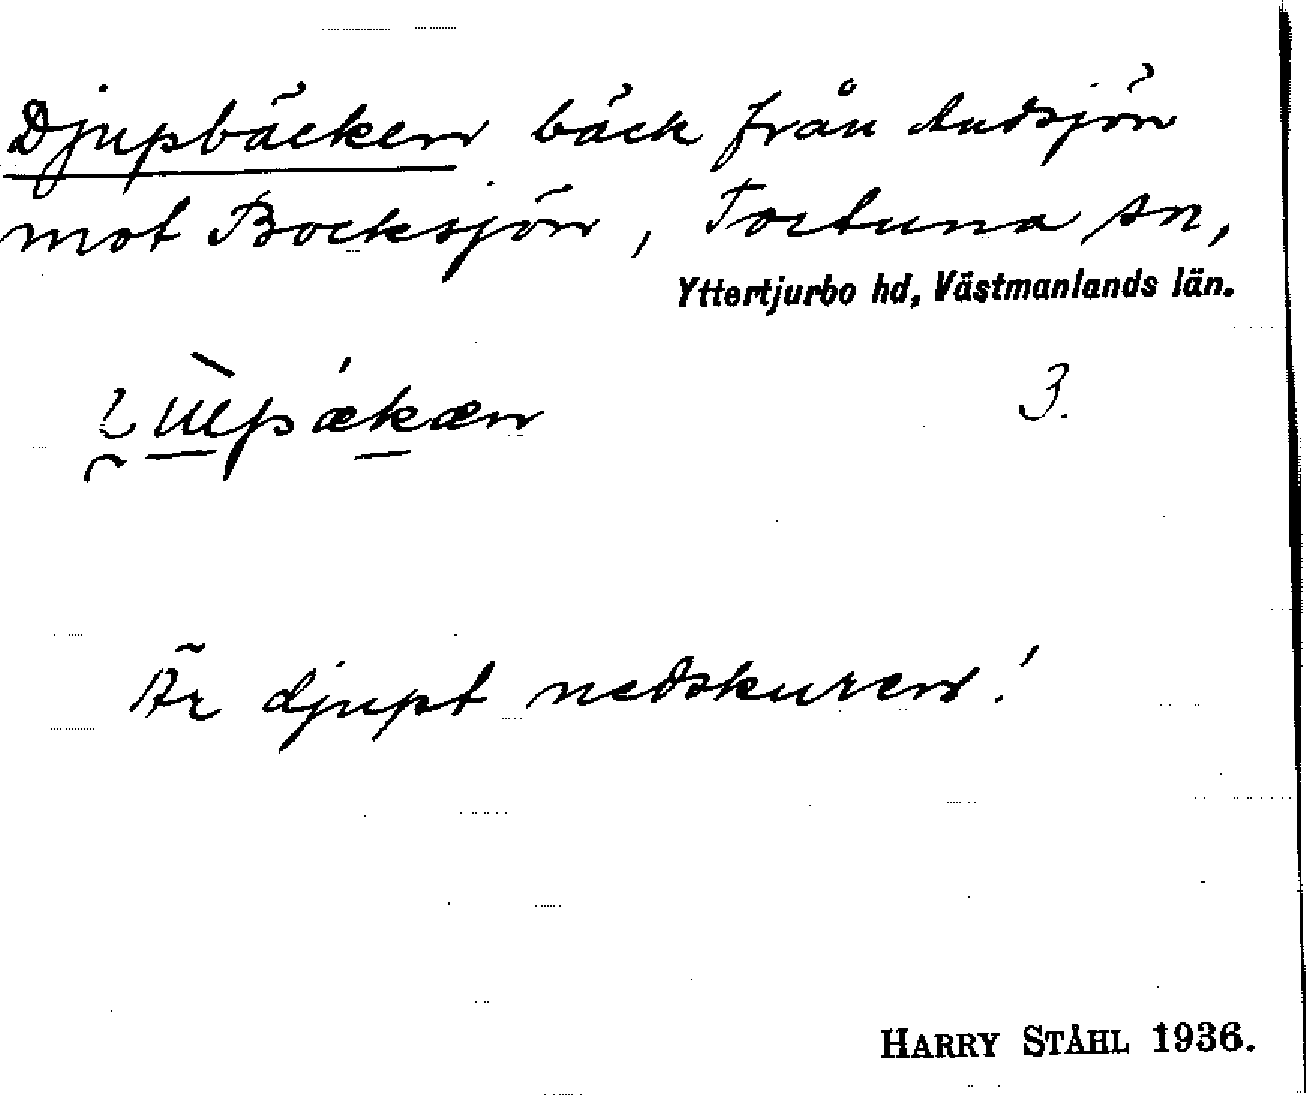 Djupbäcken bäck från
mot Bocksjön, Tortuna sn,
Yttertjurbo hd, Västmanlands län.
3.
Är djupt nedskuren!
HARRY STÅHL 1936.